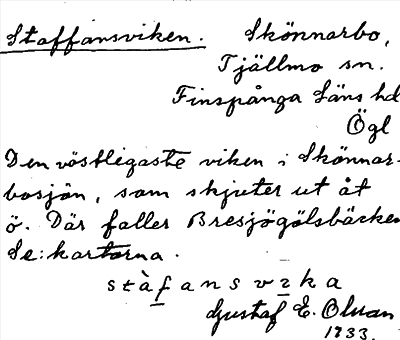 Staffansviken. Skönnarbo,
Tjällmo sn.
Finspånga läns hd
Ögl
Den västligaste viken i Skönnar-
bosjön, som skjuter ut åt
ö. Där faller Bresjögölsbäcken
Se: kartorna.
stàfansvika
Gustaf E. Olsson
1933.